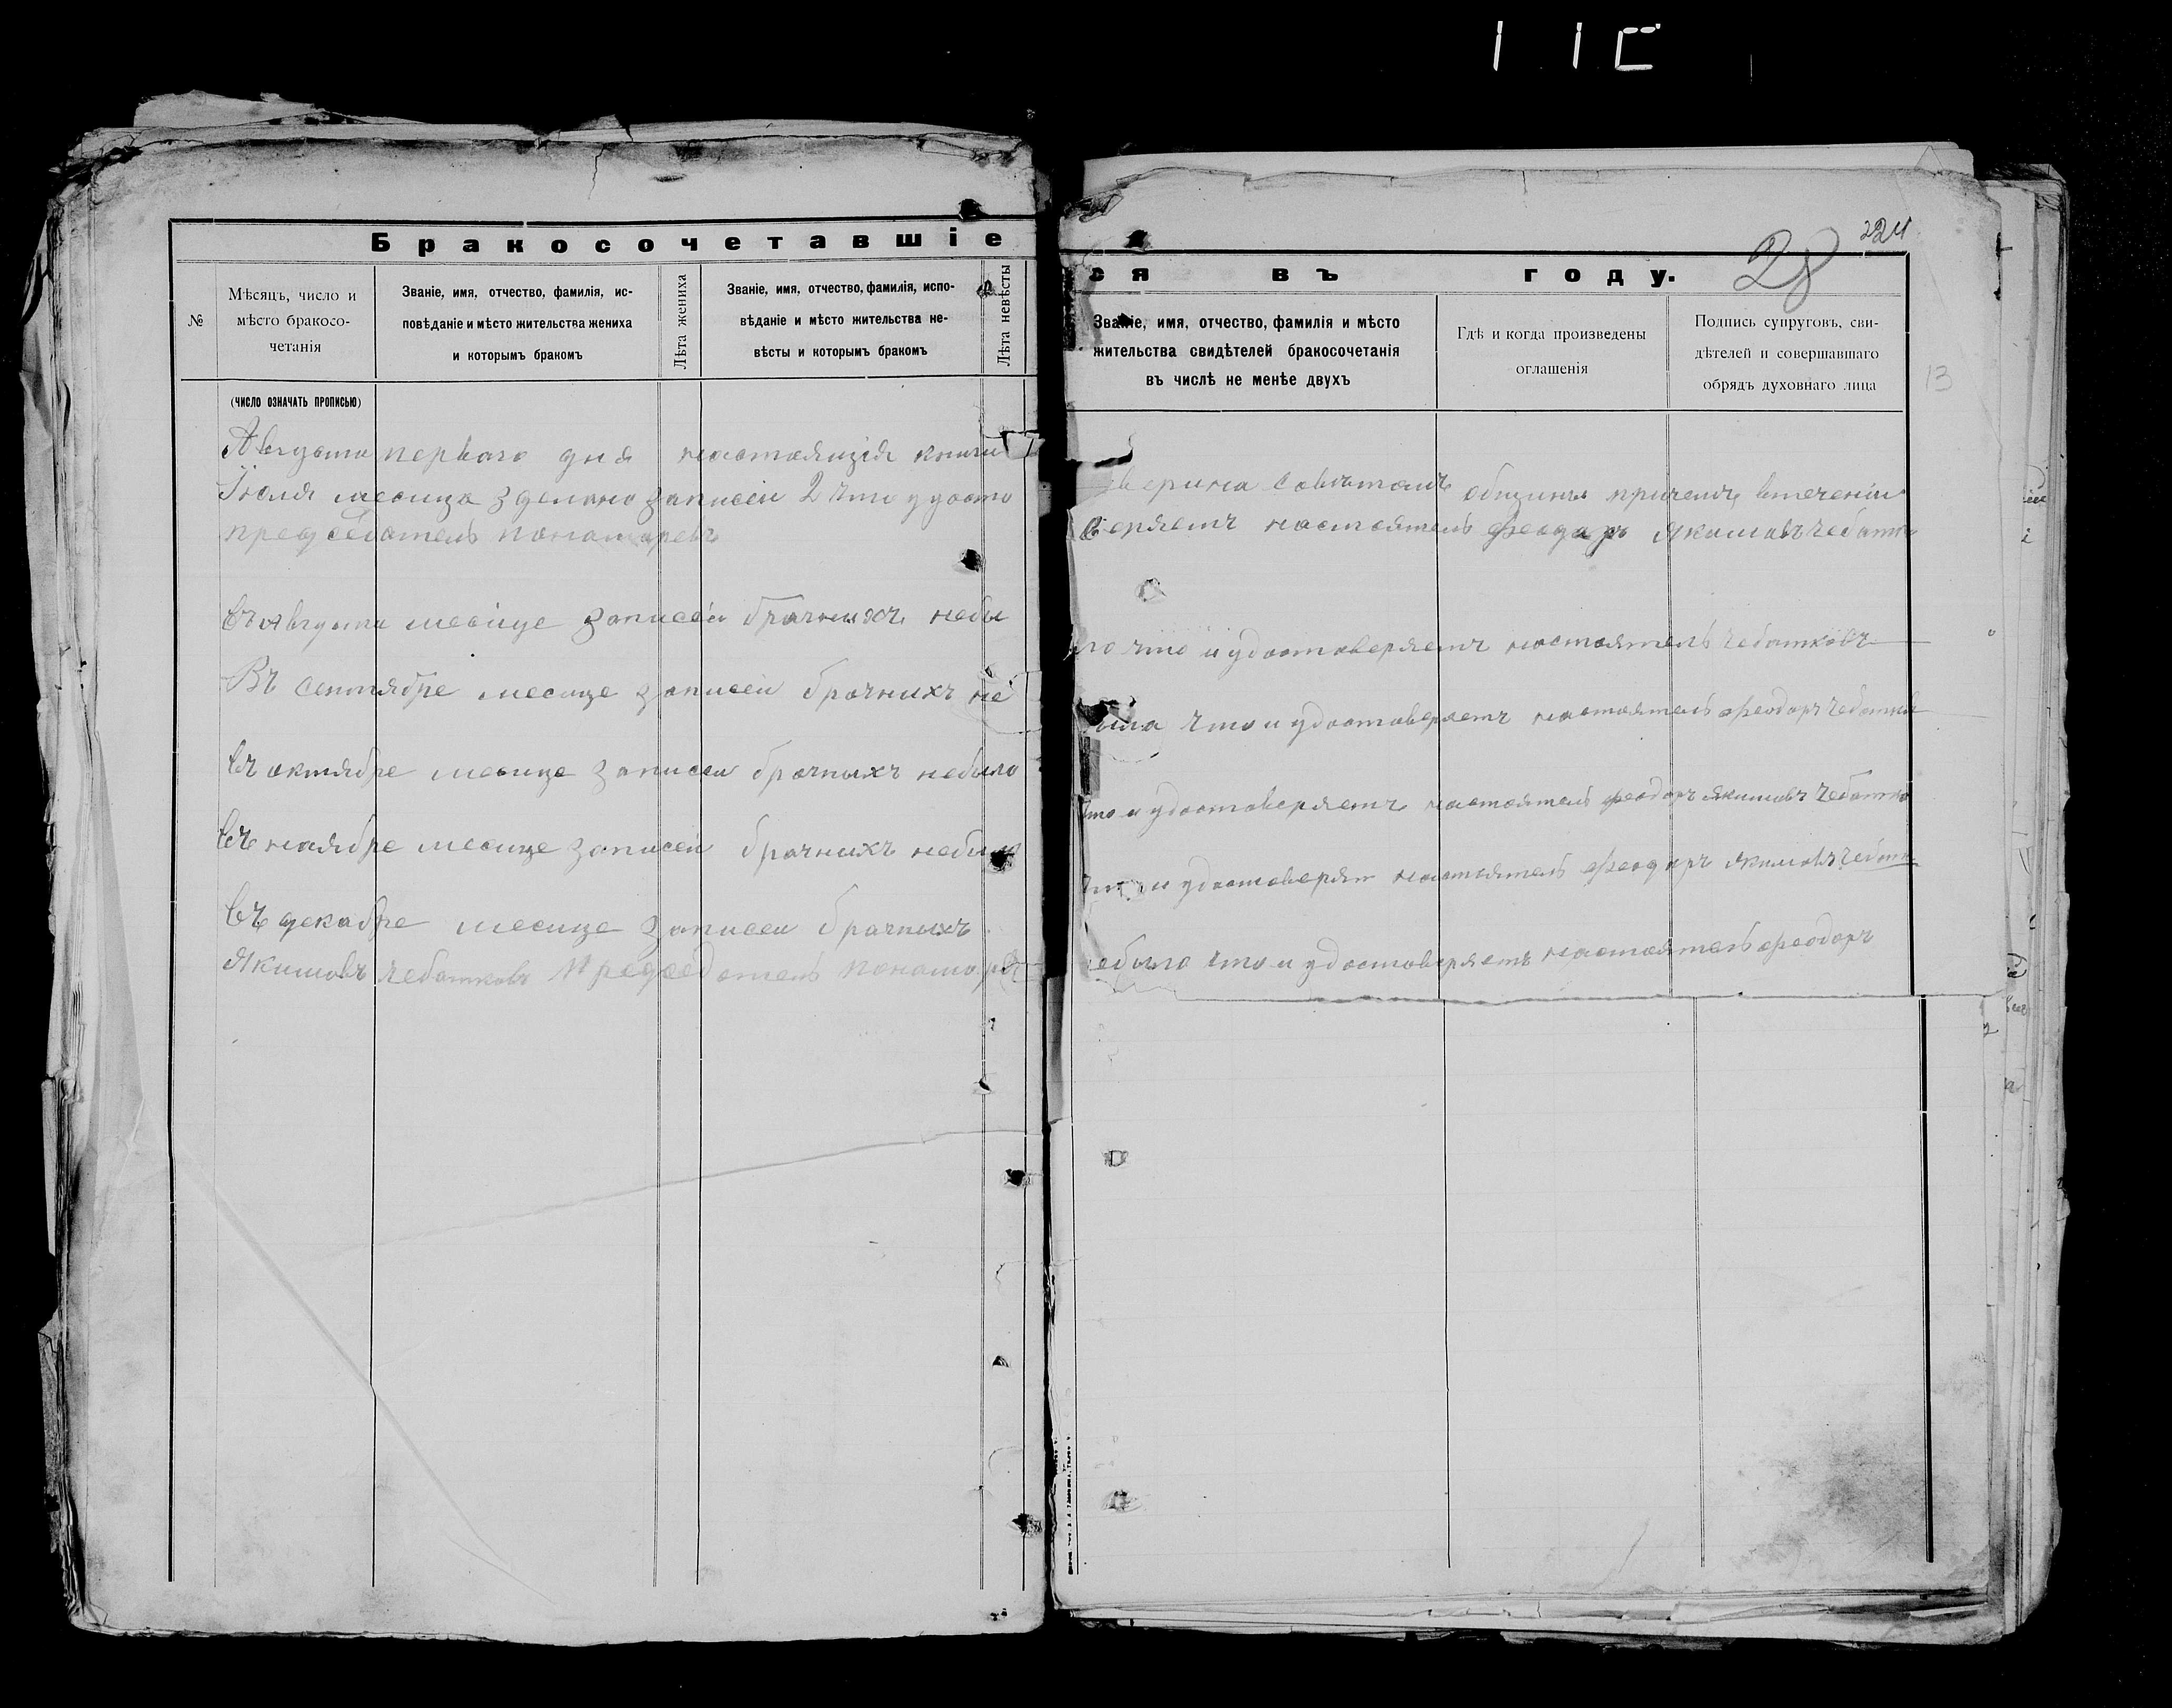 224
28
13
Бракосочетавшіе
ся въ году.
№
Мѣсяцъ, число и
мѣсто бракосо-
четанія
Званіе, имя, отчество, фамилія, ис-
повѣданіе и мѣсто жительства жениха
и которымъ бракомъ
Лѣта жениха
Званіе, имя, отчество, фамилія, испо-
вѣданіе и мѣсто жительства не-
вѣсты и которымъ бракомъ
Лѣта невѣсты
Званіе, имя, отчество, фамилія и мѣсто
жительства свидѣтелей бракосочетанія
въ числѣ не менѣе двухъ
Гдѣ и когда произведены
оглашенія
Подпись супруговъ, сви-
дѣтелей и совершавшаго
обрядъ духовнаго лица
(ЧИСЛО ОЗНАЧАТЬ ПРОПИСЬЮ)
Августа первого дня настоящія книги
верина Советомъ общины причемъ втечении
Июля месица зделано записеи 2 что удосто
веряетъ настоятель Феодоръ Якимовъ Чебатко
председатель Понамаревъ
въ августа месице записеи брачныхъ небы
ло что и удостоверяетъ настоятель Чебатковъ
Въ сентябре месице записеи брачнихъ не
била что и удостоверяетъ настоятель Феодоръ Чебатков
въ октябре месице записеи брачныхъ небыло
что и удостоверяетъ настоятель Феодоръ Якимовъ Чебатко
въ наябре месице записеи брачнихъ небыло
что и удостоверят настоятель Феодоръ Якимовъ Чебатк
въ декабре месице записеи брачныхъ
небыло что и удостоверяетъ настоятель Феодоръ
Якимовъ Чебатковъ Председатель Понамаревъ